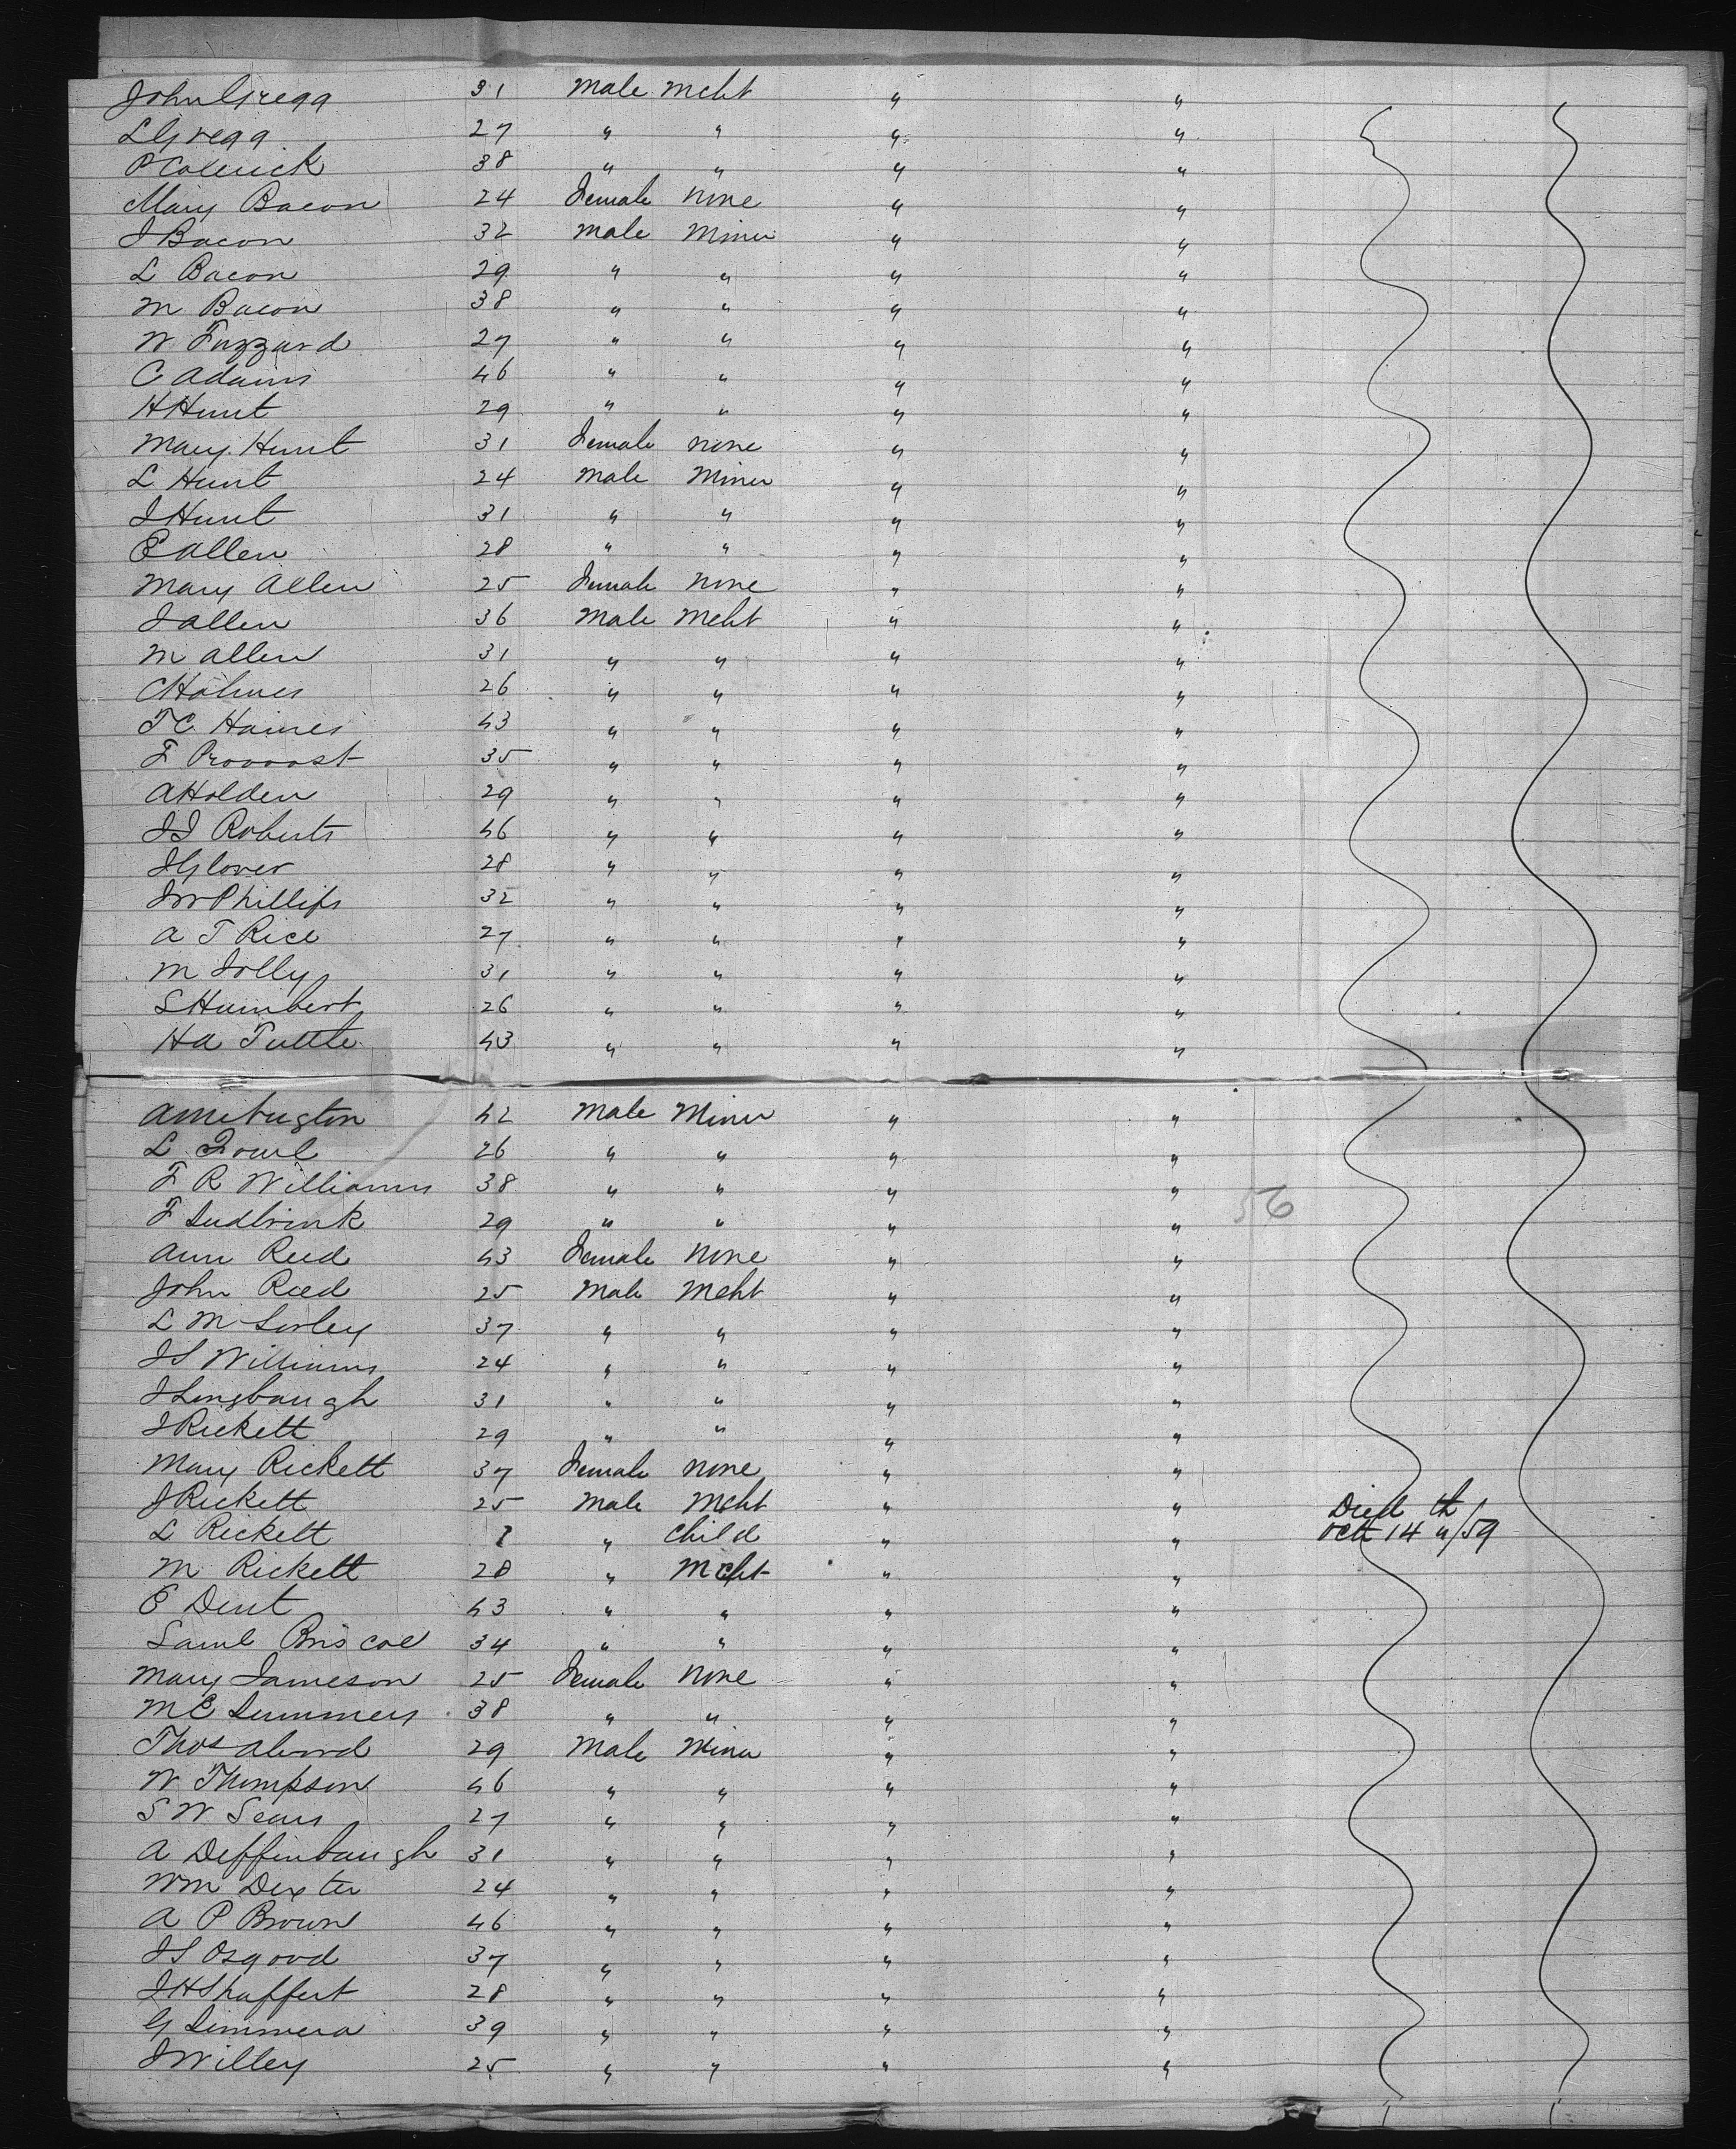 John Gregg 31 Male Mcht " "
L Gregg 27 " " " "
P Colerick 38 " " " "
Mary Bacon 24 Female none " "
J Bacon 32 Male Miner " "
L Bacon 29 " " " "
M Bacon 38 " " " "
W Fuzzard 27 " " " "
C Adams 46 " " " "
H Hunt 29 " " " "
Mary Hunt 31 Female none " "
L Hunt 24 Male Miner " "
J Hunt 31 " " " "
E Allen 28 " " " "
Mary Allen 25 Female none " "
J Allen 36 Male Mcht " "
M Allen 31 " " " "
C Holmes 26 " " " "
T C Haines 43 " " " "
F Provost 35 " " " "
A Holden 29 " " " "
J J Roberts 46 " " " "
J Glover 28 " " " "
J W Phillips 32 " " " "
A T Rice 27 " " " "
M Jolly 31 " " " "
S Humbert 26 " " " "
H A Tuttle 43 " " " "
42 Male Miner " "
L 26 " " " "
F R Williams 38 " " " "
F Sudbrink 29 " " " " 56
Ann Reed 43 Female none " "
John Reed 25 Male Mcht " "
L M Sorley 37 " " " "
J S Williams 24 " " " "
J Longbaugh 31 " " " "
J Rickett 29 " " " "
Mary Rickett 37 Female none " "
J Rickett 25 Male Mcht " " Died th
L Rickett 1 " Child " " Oct 14 "/59
M Rickett 28 " Mcht " "
E Dent 43 " " " "
Saml Briscoe 34 " " " "
Mary Jameson 25 Female none " "
M E Summers 38 " " " "
Thos Alvord 29 Male Miner " "
W Thompson 46 " " " "
S W Sears 27 " " " "
A Deffinbaugh 31 " " " "
Wm Dexter 24 " " " "
A P Brown 46 " " " "
J S Osgood 37 " " " "
J H Shaffert 28 " " " "
G 39 " " " "
J Willey 25 " " " "